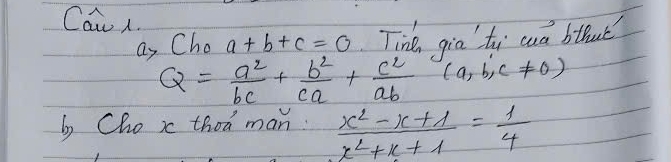 Câu 1.
a, Cho a + b + c = 0. Tính giá trị của bthức
Q = a²/bc + b²/ca + c²/ab (a, b, c ≠ 0)
b, Cho x thoả mãn: (x² - x + 1)/(x² + x + 1) = 1/4